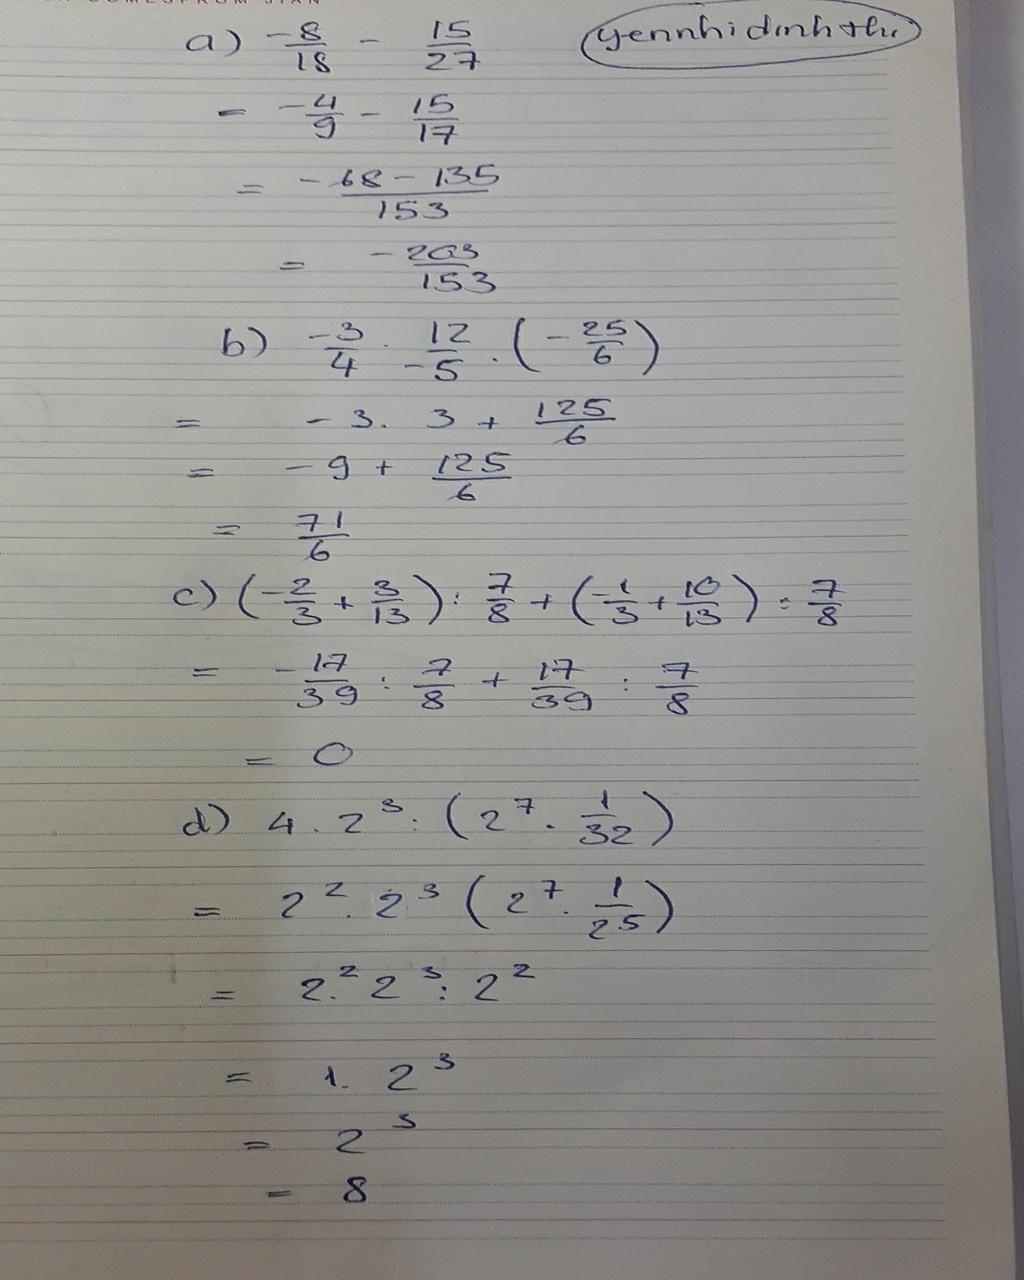 a) -8/18 - 15/27 yennhidinhthi
= -4/9 - 15/17
= (-68 - 135)/153
= -203/153
b) -3/4 . 12/-5 . (-25/6)
= -3. 3 + 125/6
= -9 + 125/6
= 71/6
c) (-2/3 + 3/13) : 7/8 + (-1/3 + 10/13) : 7/8
= -17/39 : 7/8 + 17/39 : 7/8
= 0
d) 4 . 2³ : (2⁷ . 1/32)
= 2² . 2³ (2⁷ . 1/25)
= 2.² 2³ : 2²
= 1. 2³
= 2³
= 8